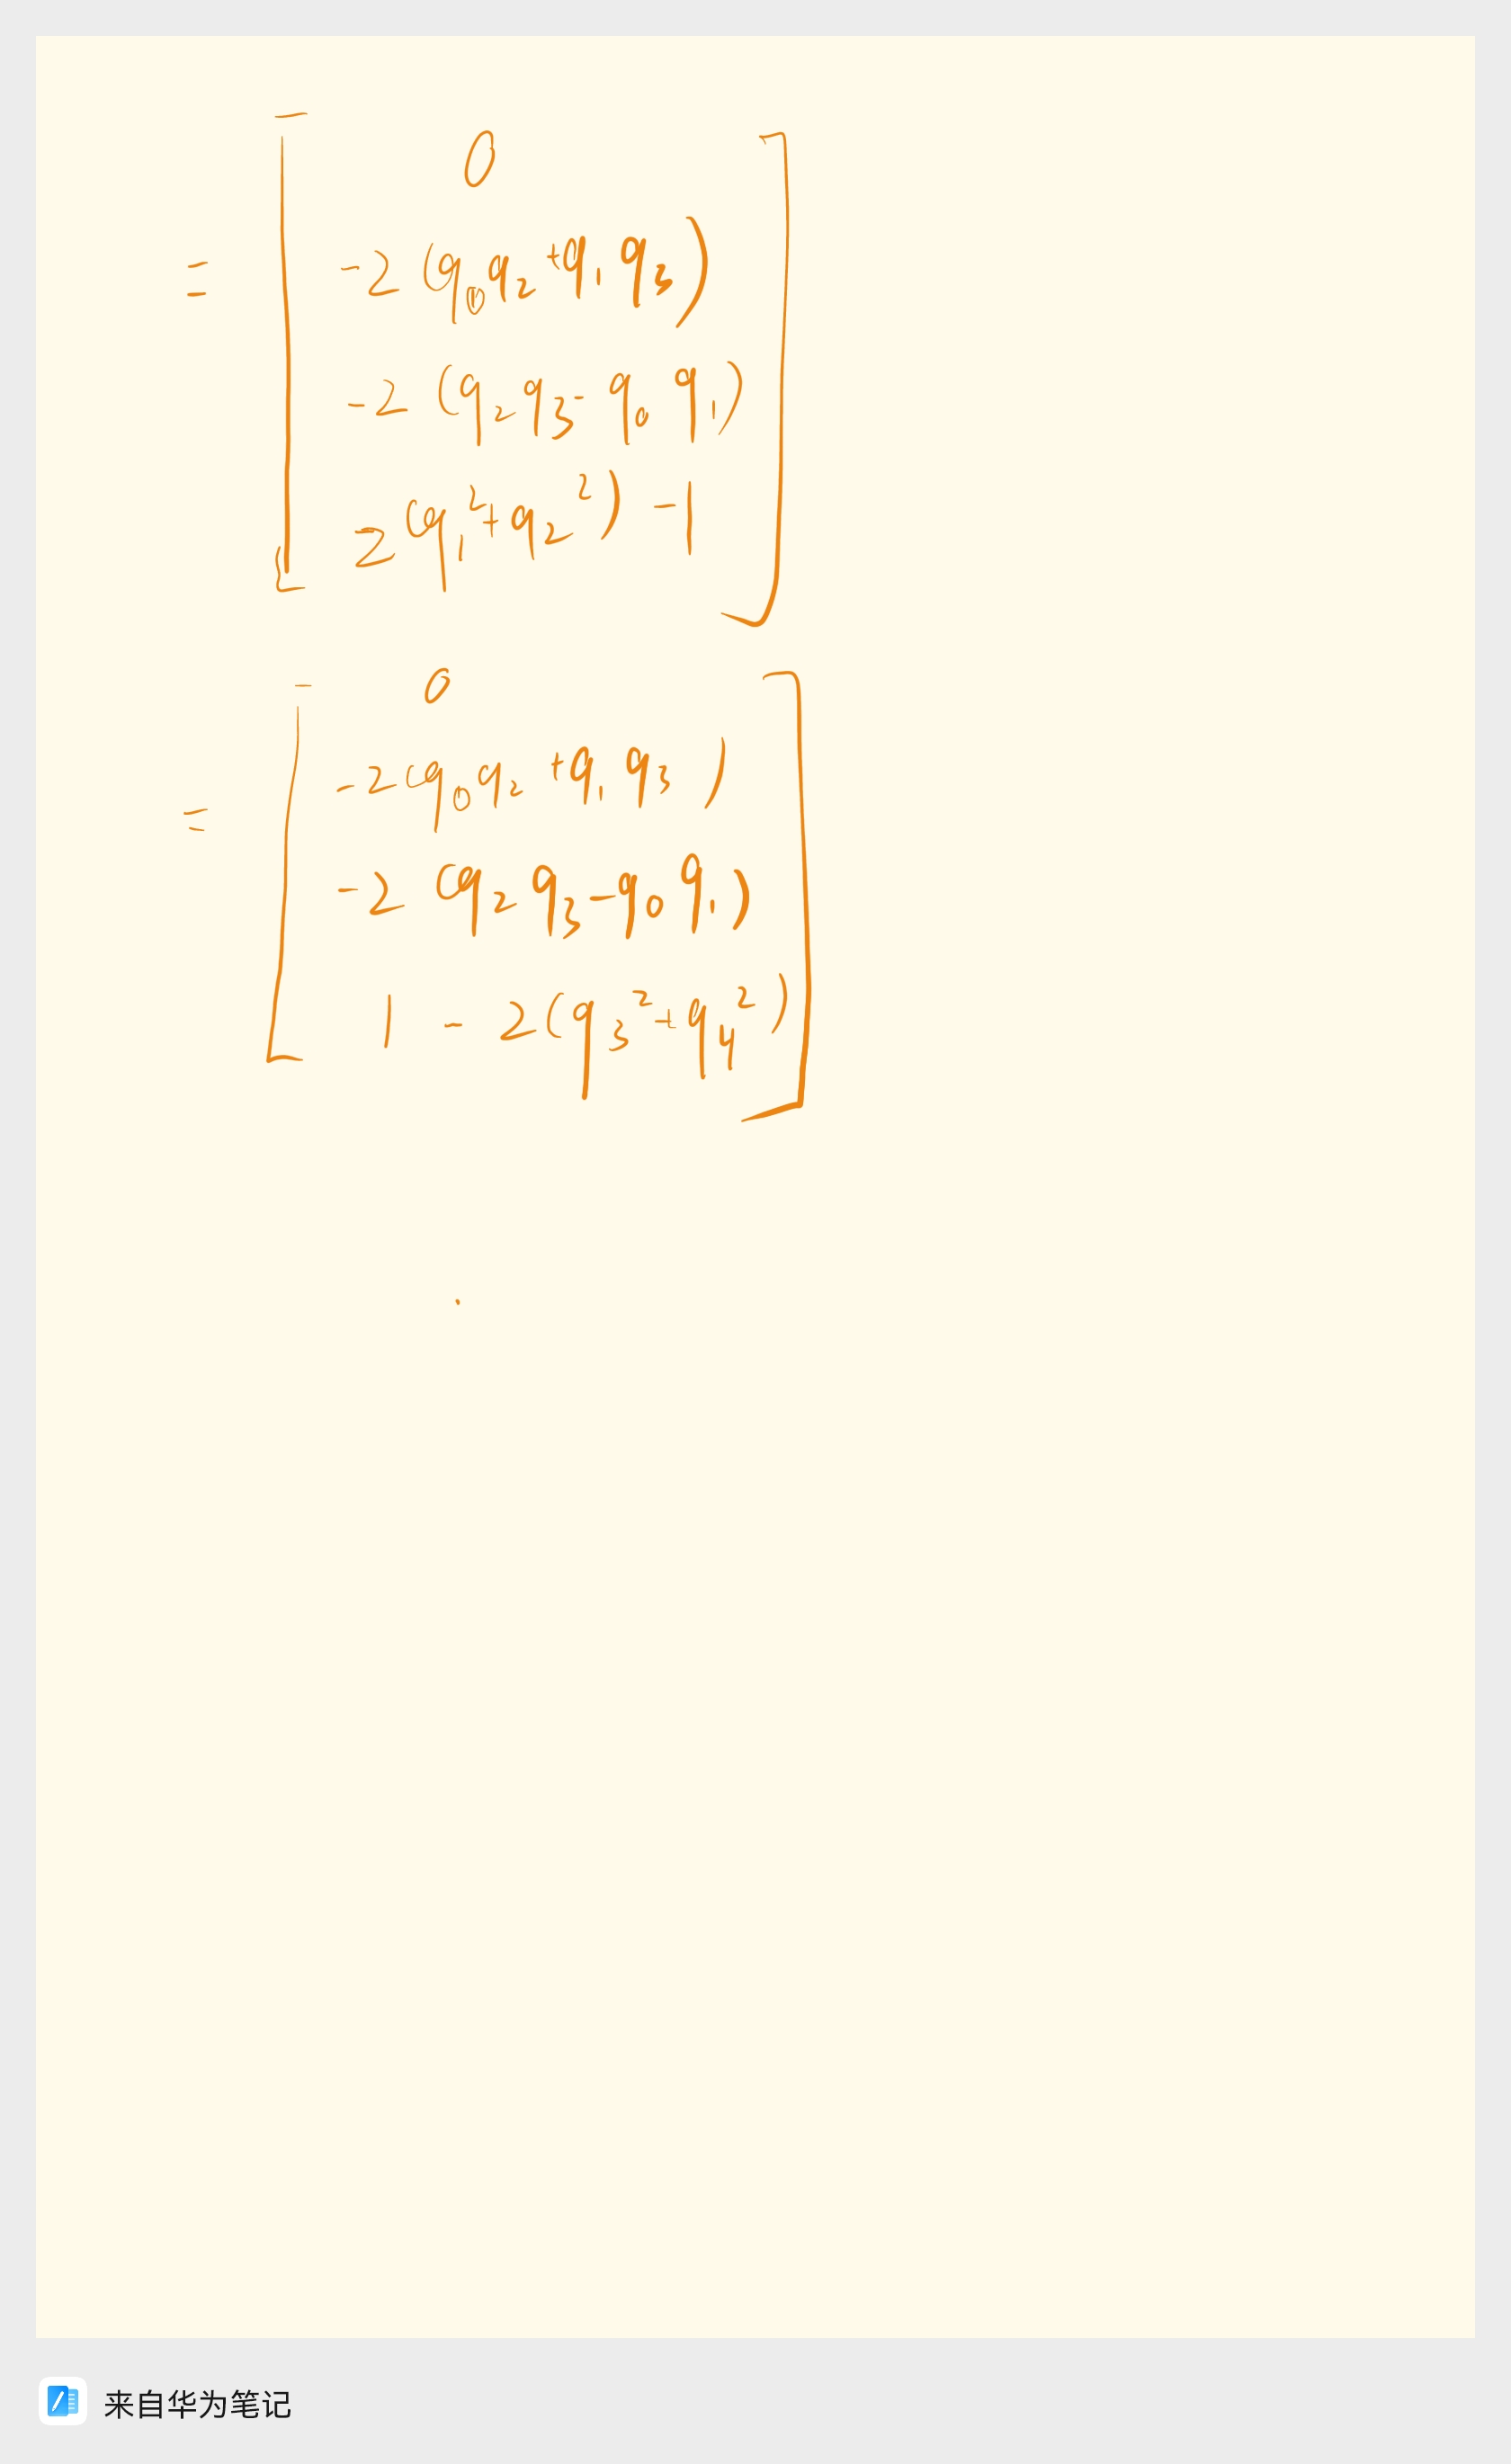 =
0
-2(q₀q₂+q₁q₃)
-2(q₂q₃-q₀q₁)
2(q₁²+q₂²)-1
=
0
-2(q₀q₂+q₁q₃)
-2(q₂q₃-q₀q₁)
1-2(q₃²+q₄²)
来自华为笔记